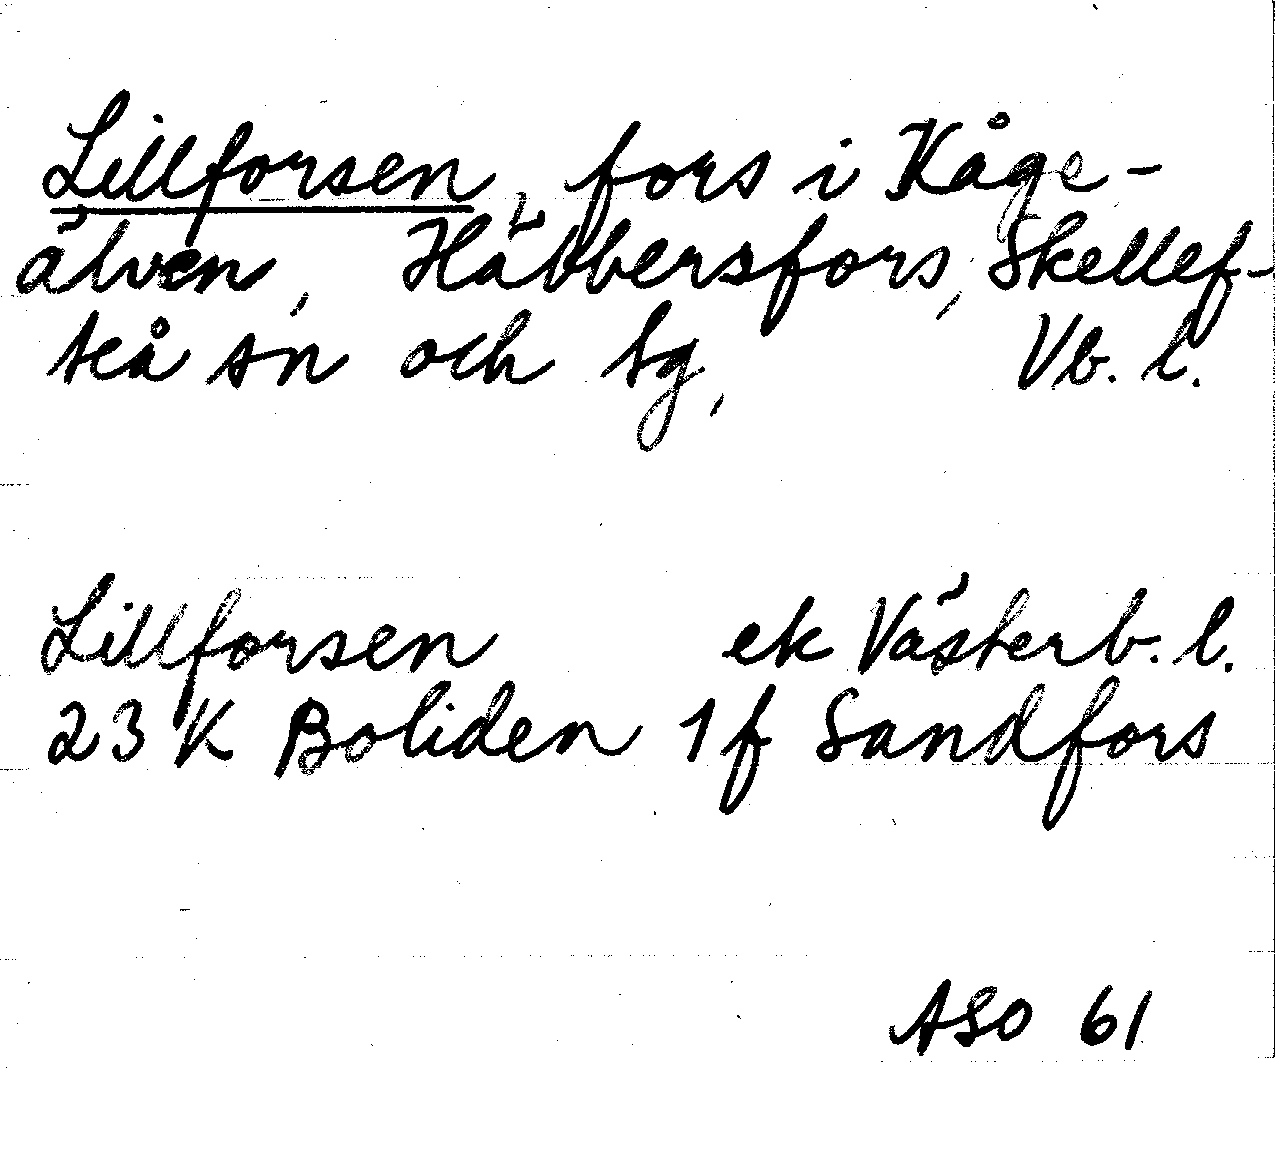 Lillforsen, fors i Kåge-
älven, Häbbersfors, Skellef-
teå sn och tg, Vb. l.
Lillforsen ek Västerb. l.
23 K Boliden 1f Sandfors
ASO 61